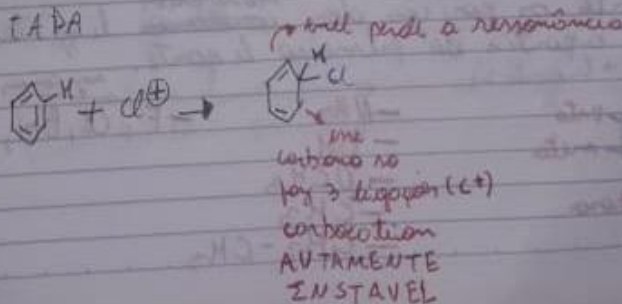 ETAPA
anel perde a ressonância
H H
+ Cl⊕ → Cl
esse
carbono só
faz 3 ligações (C+)
carbocátion
AUTAMENTE
INSTAVEL
CH3